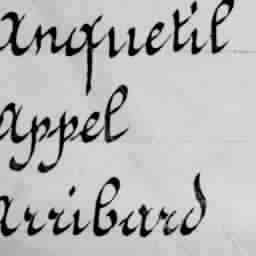 Anquetil
Appel
Arribard